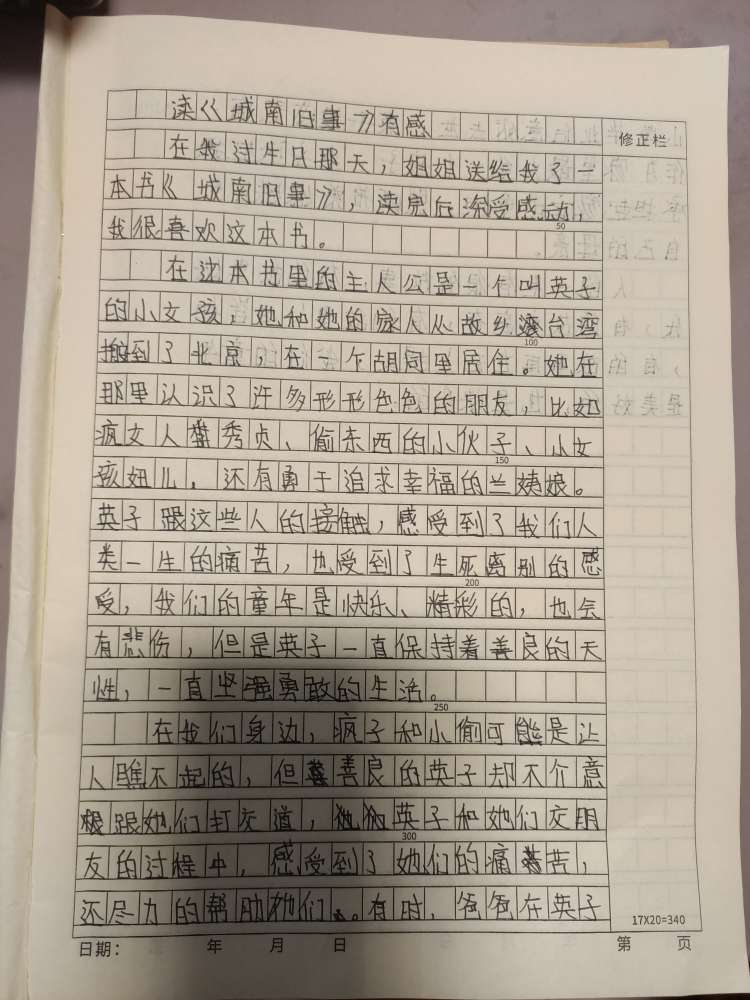 读《城南旧事》有感
修正栏
在我过生日那天，姐姐送给我了一
本书《城南旧事》，读完后深受感动，
50
我很喜欢这本书。
在这本书里的主人公是一个叫英子
的小女孩，她和她的家人从故乡台湾
100
搬到了北京，在一个胡同里居住。她在
那里认识了许多形形色色的朋友，比如
疯女人秀贞、偷东西的小伙子、小女
150
孩妞儿，还有勇于追求幸福的兰姨娘。
英子跟这些人的接触，感受到了我们人
类一生的痛苦，也受到了生死离别的感
200
受，我们的童年是快乐、精彩的，也会
有悲伤，但是英子一直保持着善良的天
性，一直坚强勇敢的生活。
250
在我们身边，疯子和小偷可能是让
人瞧不起的，但善良的英子却不介意
跟她们打交道，英子和她们交朋
300
友的过程中，感受到了她们的痛苦，
还尽力的帮助她们。有时，爸爸在英子
17X20=340
日期： 年 月 日 第 页